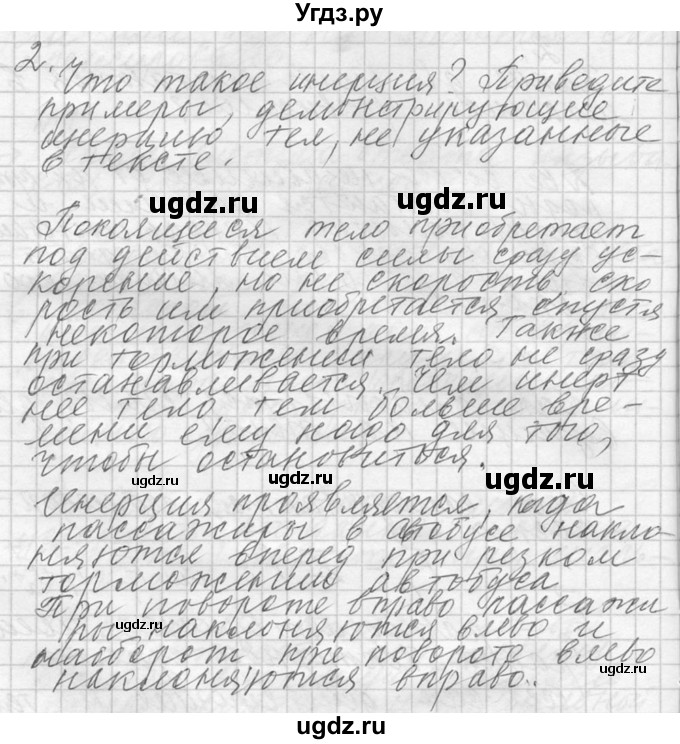 Угдз.ру
2.
Что такое инерция? Приведите
примеры, демонстрирующие
инерцию тел, не указанные
в тексте.
ugdz.ru ugdz.ru
Покоящееся тело приобретает
под действием силы сразу ус-
корение, но не скорость, ско
рость им приобретается спустя
некоторое время. Также
при торможении тело не сразу
останавливается. Чем инерт
нее тело тем больше вре-
мени ему надо для того,
чтобы остановиться.
ugdz.ru ugdz.ru
Инерция проявляется, когда
пассажиры в автобусе накло-
няются вперед при резком
торможении автобуса
При повороте вправо пассажи
ры наклоняются влево и
наоборот при повороте влево
наклоняются вправо.
ugdz.ru ugdz.ru
ugdz.ru